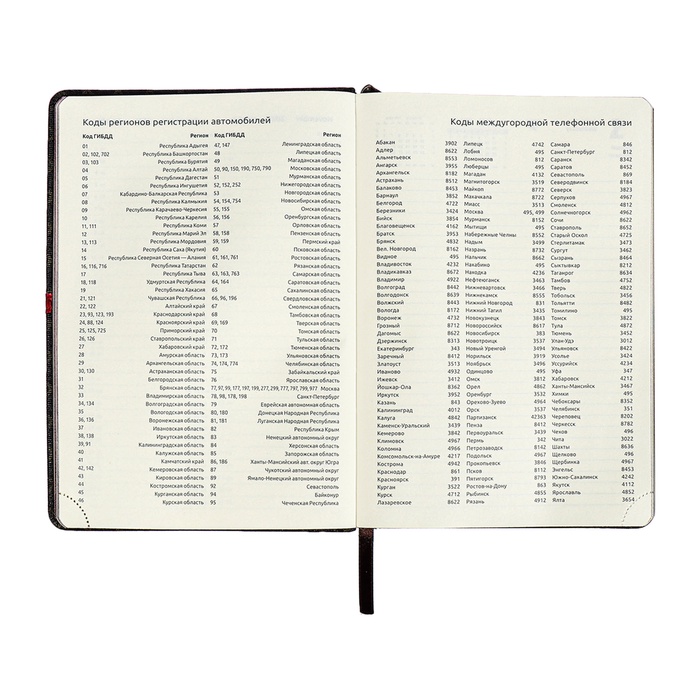 Коды регионов регистрации автомобилей
Код ГИБДД Регион Код ГИБДД Регион
01 Республика Адыгея 47, 147 Ленинградская область
02, 102, 702 Республика Башкортостан 48 Липецкая область
03, 103 Республика Бурятия 49 Магаданская область
04 Республика Алтай 50, 90, 150, 190, 750, 790 Московская область
05 Республика Дагестан 51 Мурманская область
06 Республика Ингушетия 52, 152, 252 Нижегородская область
07 Кабардино-Балкарская Республика 53 Новгородская область
08 Республика Калмыкия 54, 154, 754 Новосибирская область
09 Республика Карачаево-Черкесия 55, 155 Омская область
10 Республика Карелия 56, 156 Оренбургская область
11, 111 Республика Коми 57 Орловская область
12 Республика Марий Эл 58 Пензенская область
13, 113 Республика Мордовия 59, 159 Пермский край
14 Республика Саха (Якутия) 60 Псковская область
15 Республика Северная Осетия — Алания 61, 161, 761 Ростовская область
16, 116, 716 Республика Татарстан 62 Рязанская область
17 Республика Тыва 63, 163, 763 Самарская область
18, 118 Удмуртская Республика 64, 164 Саратовская область
19 Республика Хакасия 65 Сахалинская область
21, 121 Чувашская Республика 66, 96, 196 Свердловская область
22 Алтайский край 67 Смоленская область
23, 93, 123, 193 Краснодарский край 68 Тамбовская область
24, 88, 124 Красноярский край 69, 169 Тверская область
25, 125, 725 Приморский край 70 Томская область
26, 126 Ставропольский край 71 Тульская область
27 Хабаровский край 72, 172 Тюменская область
28 Амурская область 73, 173 Ульяновская область
29 Архангельская область 74, 174, 774 Челябинская область
30, 130 Астраханская область 75 Забайкальский край
31 Белгородская область 76 Ярославская область
32 Брянская область 77, 97, 99, 177, 197, 199, 277, 299, 777, 797, 799, 977 Москва
33 Владимирская область 78, 98, 178, 198 Санкт-Петербург
34, 134 Волгоградская область 79 Еврейская автономная область
35 Вологодская область 80, 180 Донецкая Народная Республика
36, 136 Воронежская область 81, 181 Луганская Народная Республика
37 Ивановская область 82 Республика Крым
38, 138 Иркутская область 83 Ненецкий автономный округ
39, 91 Калининградская область 84 Херсонская область
40 Калужская область 85 Запорожская область
41 Камчатский край 86, 186 Ханты-Мансийский авт. округ Югра
42, 142 Кемеровская область 87 Чукотский автономный округ
43 Кировская область 89 Ямало-Ненецкий автономный округ
44 Костромская область 92 Севастополь
45 Курганская область 94 Байконур
46 Курская область 95 Чеченская Республика
Коды междугородной телефонной связи
Абакан 3902 Липецк 4742 Самара 846
Адлер 8622 Лобня 495 Санкт-Петербург 812
Альметьевск 8553 Ломоносов 812 Саранск 8342
Ангарск 3955 Люберцы 495 Саратов 8452
Архангельск 8182 Магадан 4132 Севастополь 869
Астрахань 8512 Магнитогорск 3519 Северодвинск 8184
Балаково 8453 Майкоп 8772 Северск 3823
Барнаул 3852 Махачкала 8722 Серпухов 4967
Белгород 4722 Миасс 3513 Смоленск 4812
Березники 3424 Москва 495, 499 Солнечногорск 4962
Бийск 3854 Мурманск 8152 Сочи 8622
Благовещенск 4162 Мытищи 495 Ставрополь 8652
Братск 3953 Набережные Челны 8552 Старый Оскол 4725
Брянск 4832 Надым 3499 Стерлитамак 3473
Вел. Новгород 8162 Назрань 8732 Сургут 3462
Видное 495 Нальчик 8662 Сызрань 8464
Владивосток 4232 Нахабино 495 Сыктывкар 8212
Владикавказ 8672 Находка 4236 Таганрог 8634
Владимир 4922 Нефтеюганск 3463 Тамбов 4752
Волгоград 8442 Нижневартовск 3466 Тверь 4822
Волгодонск 8639 Нижнекамск 8555 Тобольск 3456
Волжский 8443 Нижний Новгород 831 Тольятти 8482
Вологда 8172 Нижний Тагил 3435 Томилино 495
Воронеж 4732 Новокузнецк 3843 Томск 3822
Грозный 8712 Новороссийск 8617 Тула 4872
Дагомыс 8622 Новосибирск 383 Тюмень 3452
Дзержинск 8313 Новотроицк 3537 Улан-Удэ 3012
Екатеринбург 343 Новый Уренгой 3494 Ульяновск 8422
Заречный 8412 Норильск 3919 Усолье 3424
Златоуст 3513 Ноябрьск 3496 Уссурийск 4234
Иваново 4932 Одинцово 495 Уфа 347
Ижевск 3412 Омск 3812 Хабаровск 4212
Йошкар-Ола 8362 Орел 4862 Ханты-Мансийск 3467
Иркутск 3952 Оренбург 3532 Химки 495
Казань 843 Орехово-Зуево 4964 Чебоксары 8352
Калининград 4012 Орск 3537 Челябинск 351
Калуга 4842 Партизанск 42363 Череповец 8202
Каменск-Уральский 3439 Пенза 8412 Черкесск 8782
Кемерово 3842 Первоуральск 3439 Чехов 496
Климовск 4967 Пермь 342 Чита 3022
Коломна 4966 Петрозаводск 8142 Шахты 8636
Комсомольск-на-Амуре 4217 Подольск 4967 Щелково 496
Кострома 4942 Прокопьевск 3846 Щербинка 4967
Краснодар 861 Псков 8112 Энгельс 8453
Красноярск 391 Пятигорск 8793 Южно-Сахалинск 4242
Курган 3522 Ростов-на-Дону 863 Якутск 4112
Курск 4712 Рыбинск 4855 Ярославль 4852
Лазаревское 8622 Рязань 4912 Ялта 3654